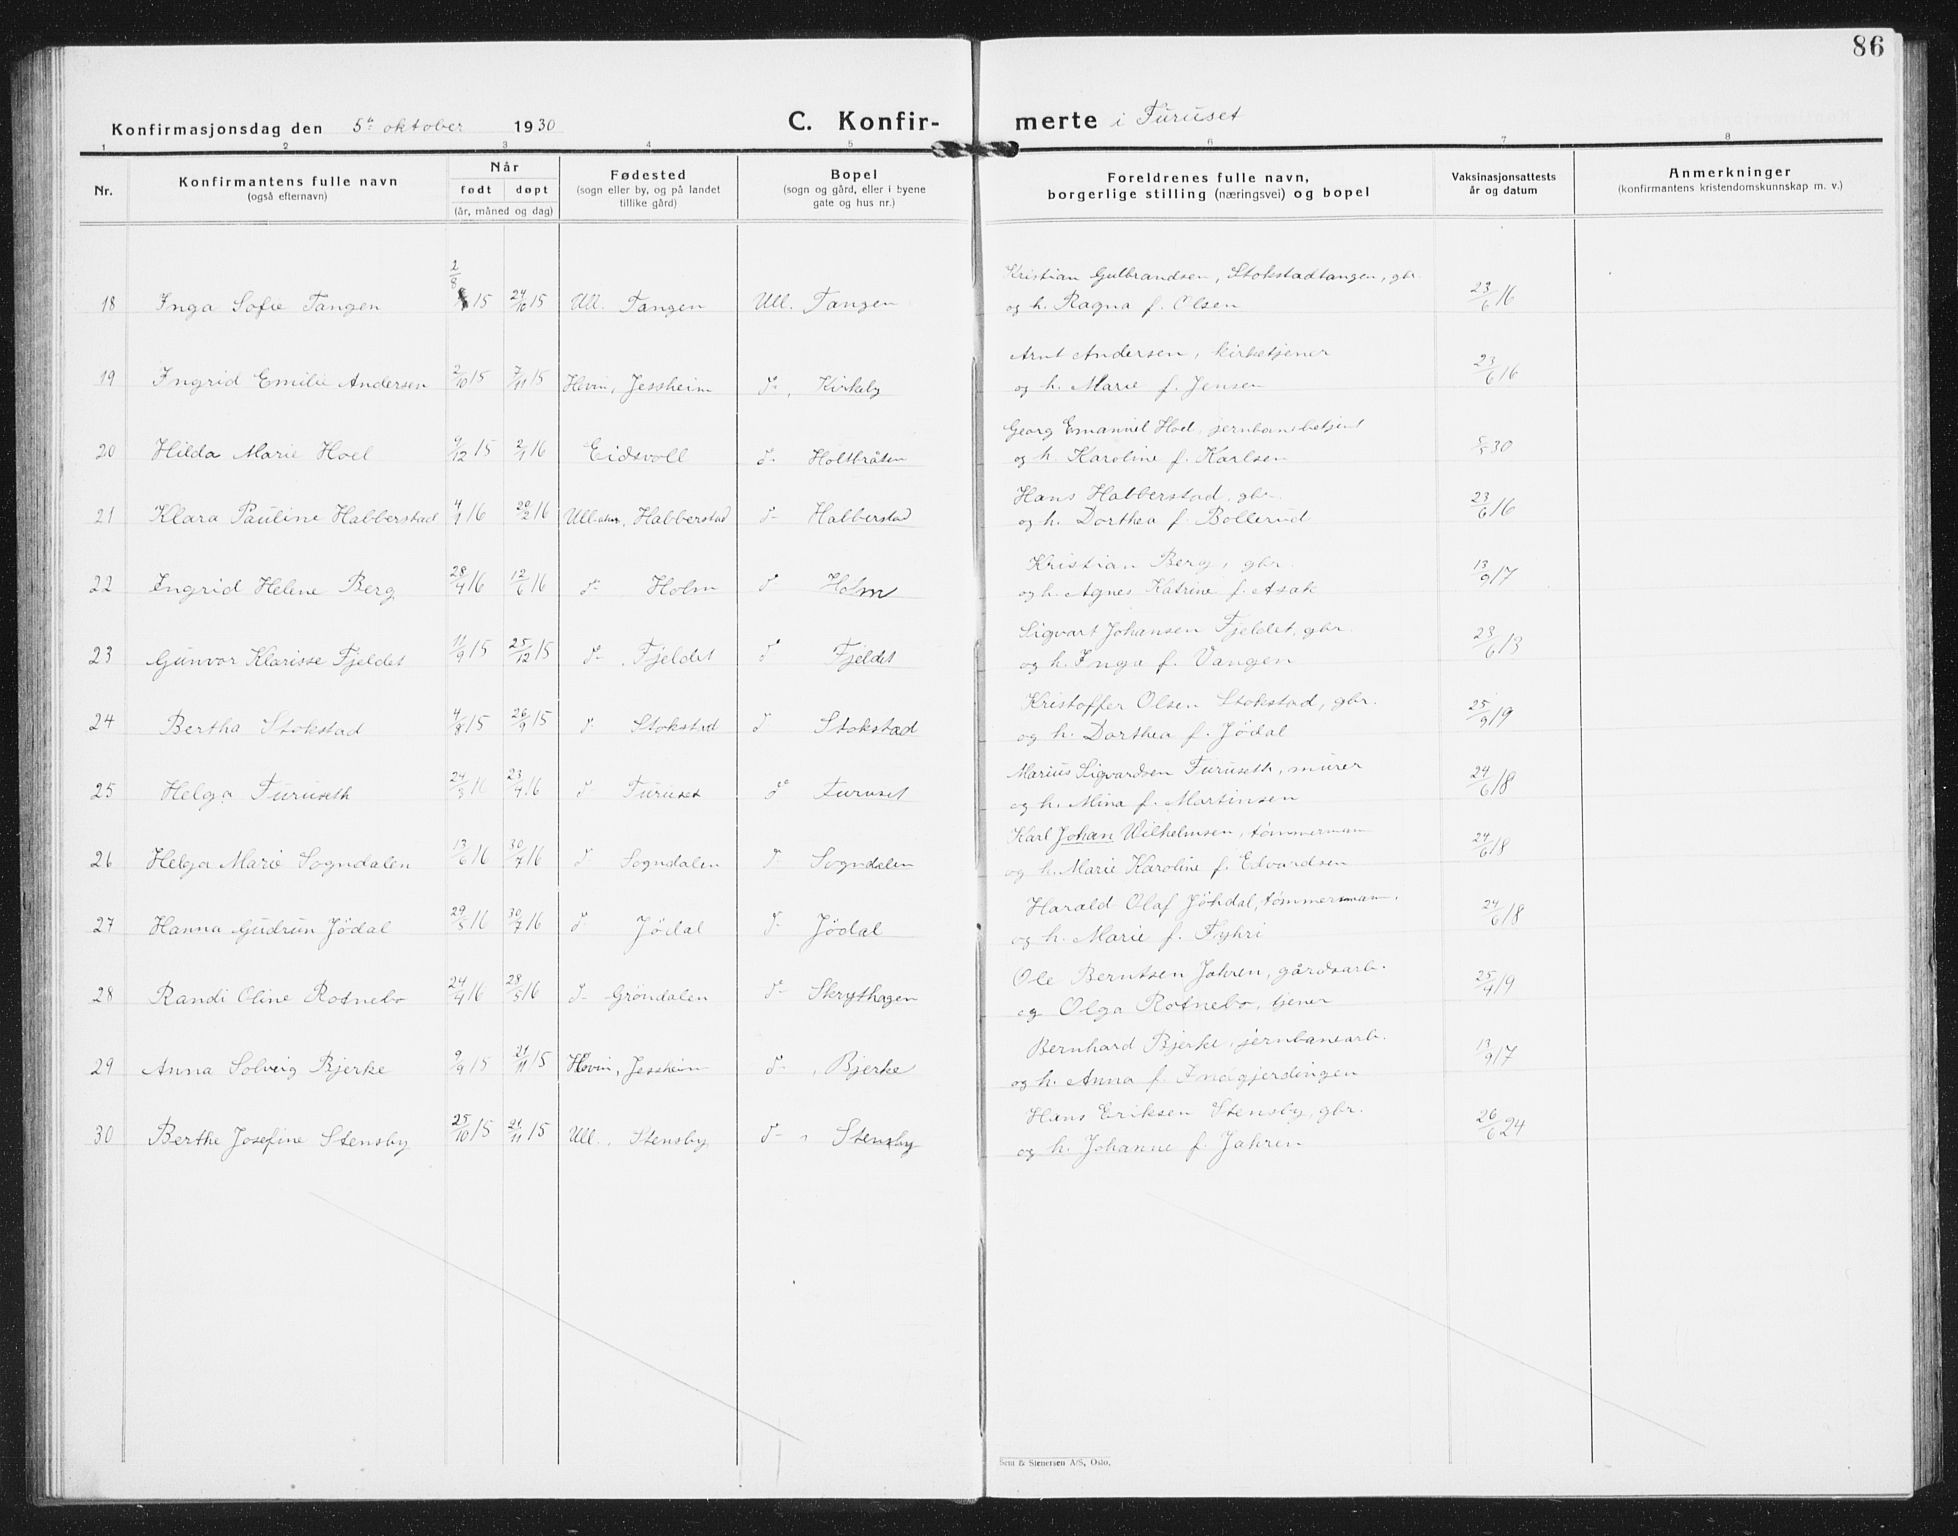 86
Konfirmasjonsdag den 5te oktober 1930
C. Konfirmerte i Furuset
1 2 3 4 5 6 7 8
Nr.
Konfirmantens fulle navn
(også efternavn)
Når
født døpt
(år, måned og dag)
Fødested
(sogn eller by, og på landet
tillike gård)
Bopel
(sogn og gård, eller i byene
gate og hus nr.)
Foreldrenes fulle navn,
borgerlige stilling (næringsvei) og bopel
Vaksinasjonsattests
år og datum
Anmerkninger
(konfirmantens kristendomskunnskap m. v.)
Kristian Gulbrandsen, Stokstadtangen, gbr.
18 Inga Sofie Tangen 2/8 15 24/10 15 Ull. Tangen Ull. Tangen og h. Ragna f. Olsen 23/6 16
Arnt Andersen, kirketjener
19 Ingrid Emilie Andersen 2/10 15 7/11 15 Hovin, Jessheim d-, Kirkeby og h. Marie f. Jensen 23/6 16
Georg Emanuel Hoel, jernbanebetjent
20 Hilda Marie Hoel 9/12 15 2/1 16 Eidsvoll d- Holtbråten og h. Karoline f. Karlsen 30
Hans Habberstad, gbr.
21 Klara Pauline Habberstad 4/1 16 20/2 16 Habberstad d- Habberstad og h. Dorthea f. Bollerud 23/6 16
Kristian Berg, gbr.
22 Ingrid Helene Berg 28/4 16 12/6 16 d- Holm d- Holm og h. Agnes Katrine f. Asak 13/9 17
Sigvart Johansen Fjeldet, gbr.
23 Gunvor Klarisse Fjeldet 11/9 15 25/12 15 d-, Fjeldet d- Fjeldet og h. Inga f. Vangen 23/6 13
Kristoffer Olsen Stokstad, gbr.
24 Bertha Stokstad 4/8 15 26/9 15 d- Stokstad d- Stokstad og h. Dorthea f. Jödal 25/9 19
Marius Sigvardsen Furuseth, murer
25 Helga Furuseth 24/3 16 23/4 16 d- Furuset d- Furuset og h. Mina f. Martinsen 24/6 18
Karl Johan Wilhelmsen, tömmermann
26 Helga Marie Sogndalen 13/6 16 30/7 16 d- Sogndalen d- Sogndalen og h. Marie Karoline f. Edvardsen 24/6 18
Harald Olaf Jöhdal, tømmermann.
27 Hanna Gudrun Jödal 29/5 16 30/7 16 d- Jödal d- Jödal og h. Marie f. Fyhri 24/6 18
Ole Berntsen Jahren, gårdsarb.
28 Randi Oline Rotnebo 24/4 16 28/5 16 d- Gröndalen d- Skrythagen og Olga Rotnebo, tjener 25/4 19
Bernhard Bjerke, jernbanearb.
29 Anna Solveig Bjerke 9/9 15 21/11 15 Hovin, Jessheim d-, Bjerke og h. Anna f. Indgjerdingen 13/9 17
Hans Eriksen Stensby, gbr.
30 Berthe Josefine Stensby 25/10 15 21/11 15 Ull., Stensby d-, Stensby og h. Johanne f. Jahren 26/6 24
Sem & Stenersen A/S, Oslo.